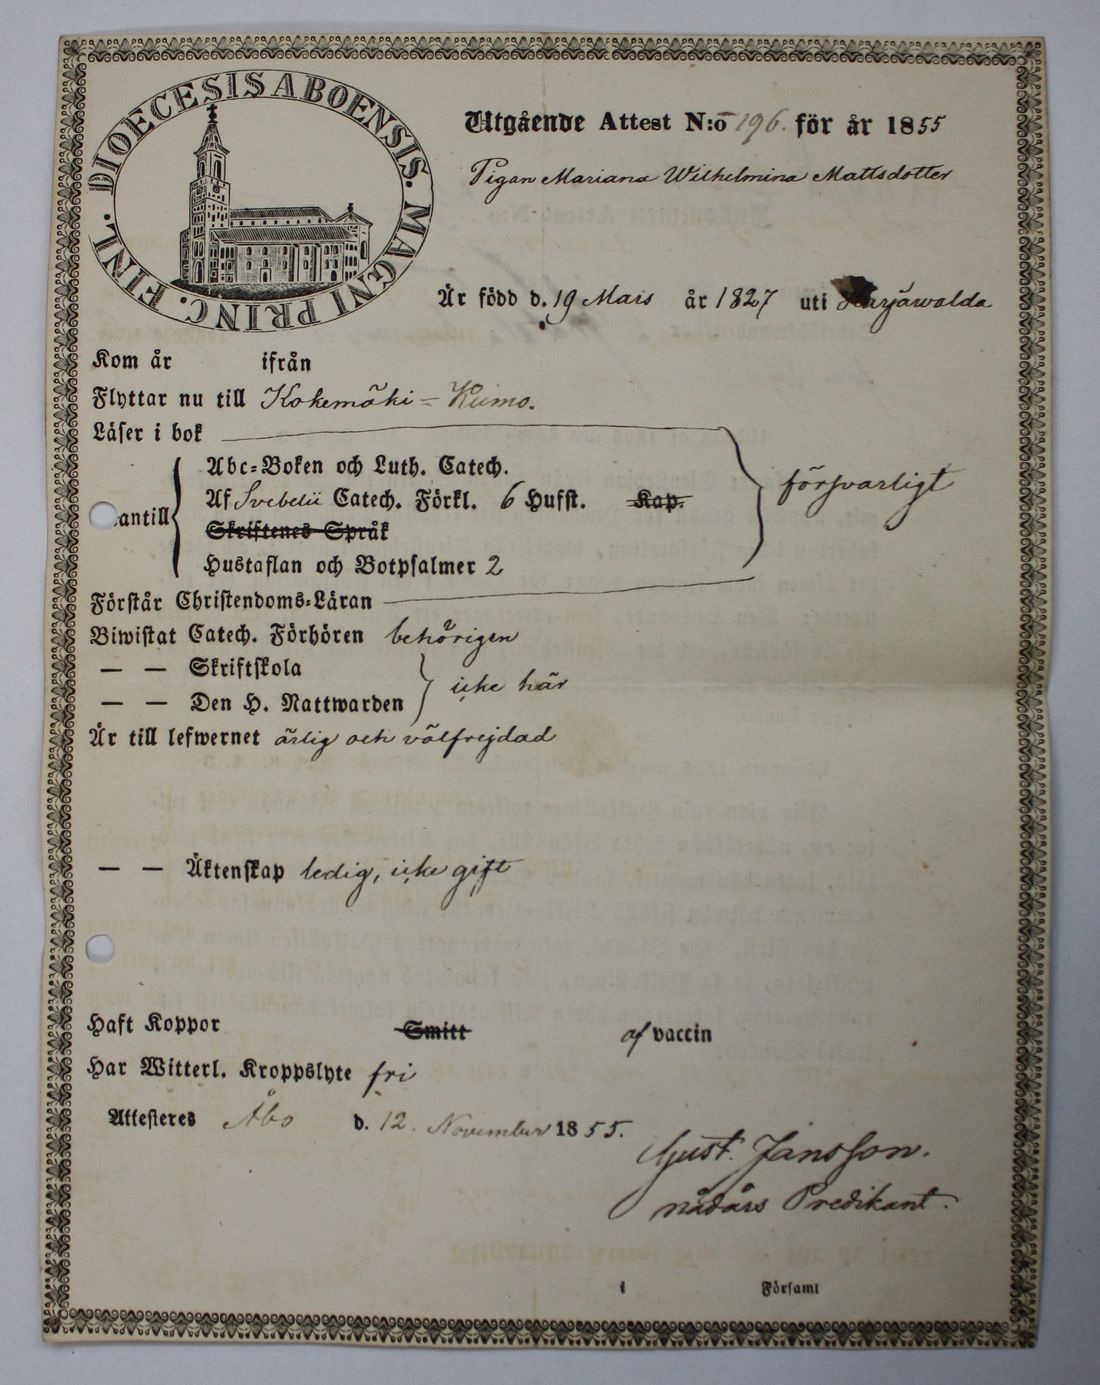 DIOECESIS ABOENSIS. MAGNI PRINC. FINL.
Utgående Attest N:o 196. för år 1855
Pigan Mariana Wilhelmina Mattsdotter
Är född d. 19 Mars år 1827 uti Harjawalda
Kom år ifrån
Flyttar nu till Kokemäki = Kumo.
Läser i bok
Abc-Boken och Luth. Catech.
Af Svebelii Catech. Förkl. 6 Hufst. Kap.
försvarligt
antill
Skriftenes Språk
Hustaflan och Botpsalmer 2
Förstår Christendoms-Läran
Biwistat Catech. Förhören behörigen
— — Skriftskola
icke här
— — Den H. Nattwarden
Är till lefwernet ärlig och välfrejdad
— — Äktenskap ledig, icke gift
Haft Koppor Smitt af vaccin
Har Witterl. Kroppslyte fri
Attesteres Åbo d. 12. November 1855.
Gust. Jansson.
nådårs Predikant.
i Församl